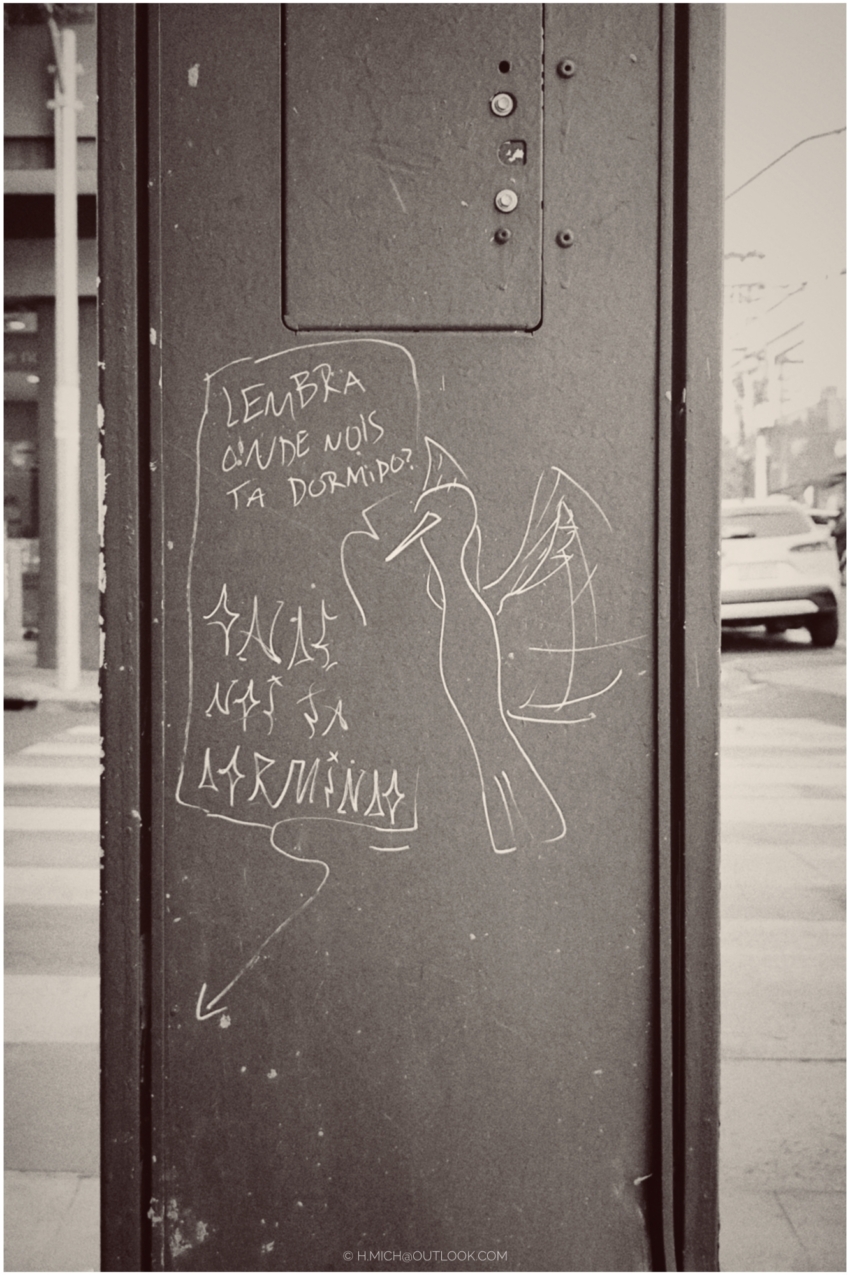 LEMBRA
ONDE NOIS
TA DORMIDO?
ONDE
NOI TA
DORMINO
© H.MICH@OUTLOOK.COM